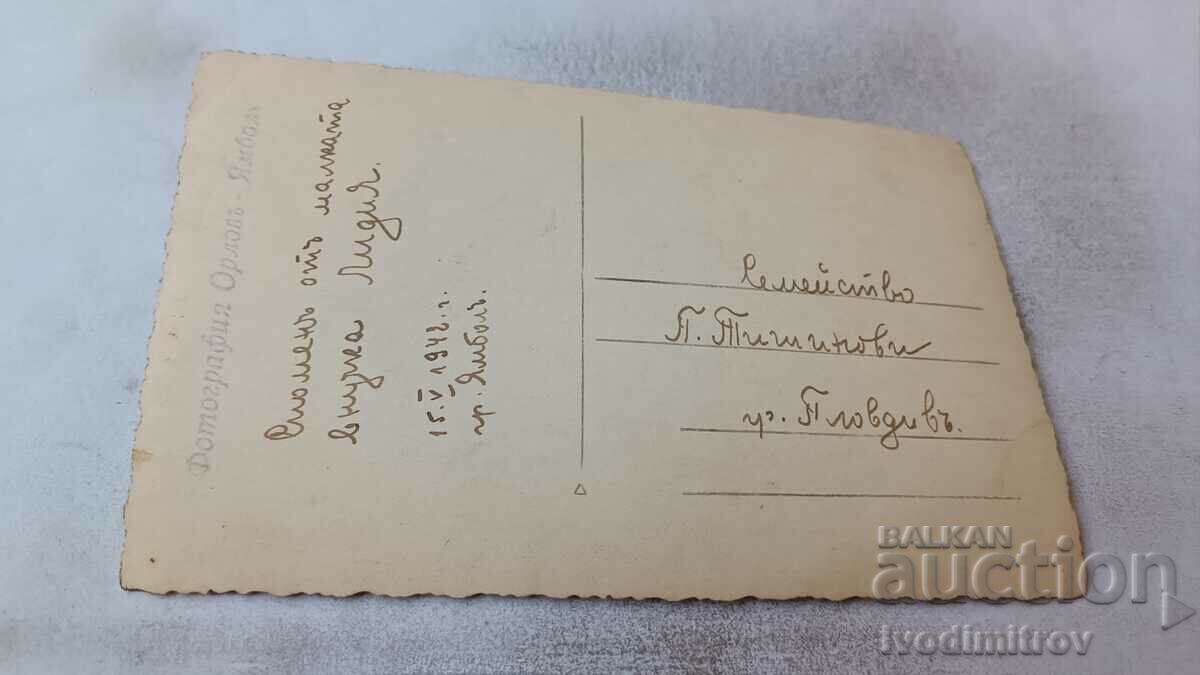 Фотография Орловъ - Ямболъ
Споменъ отъ малката
внучка Лидия.
15.V 1942 г.
гр. Ямболъ.
Семейство
П. Тишинови
гр. Пловдивъ.
BALKAN
auction
ivodimitrov